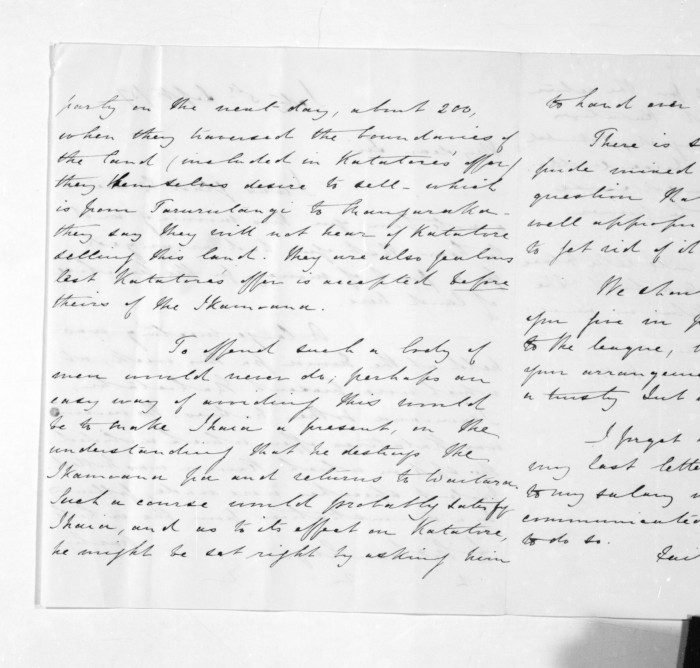 party on the next day, about 200,
when they traversed the boundaries of
the land (included in Katatore's offer)
they themselves desire to sell - which
is from Tarurutangi to
they say they will not hear of Katatore
selling this land. They are also jealous
lest Katatore's offer is accepted before
theirs of the Ikamoana.
To offend such a body of
men would never do; perhaps an
easy way of avoiding this would
be to make Ihaia a present, on the
understanding that he destroys the
Ikamoana pa and returns to Waitara.
Such a course would probably satisfy
Ihaia, and as to its effect on Katatore,
he might be set right by asking him
to hand over
There is s
pride mixed
question
well appropr
to get rid of it
We shou
you five in
to the league,
your arrangeme
a trusty
I forgot
my last lette
to my salary
communicatio
to do so.